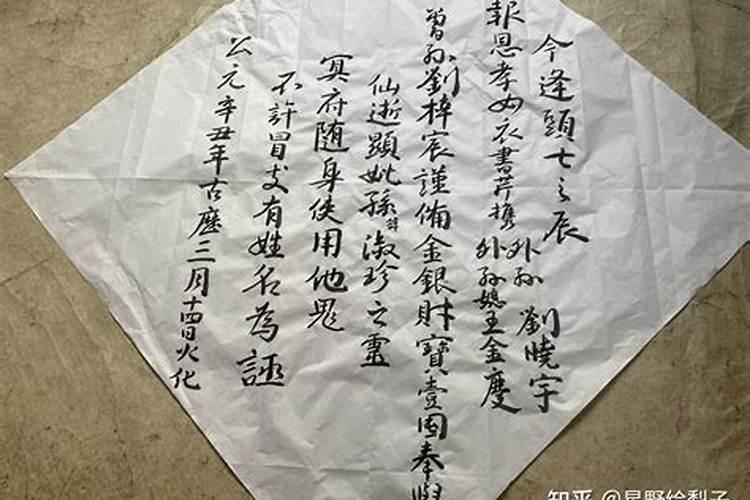 今逢頭七之辰
報恩孝女衣書芹携
外孫 劉曉宇
外孫媳王金度
曾孫劉梓宸謹備金銀財寶壹囤奉與
仙逝顯妣孫淑珍之靈
冥府随身使用他鬼
不許冒支有姓名為
公元辛丑年古歷三月十四日火化
知乎 @星野绘梨子